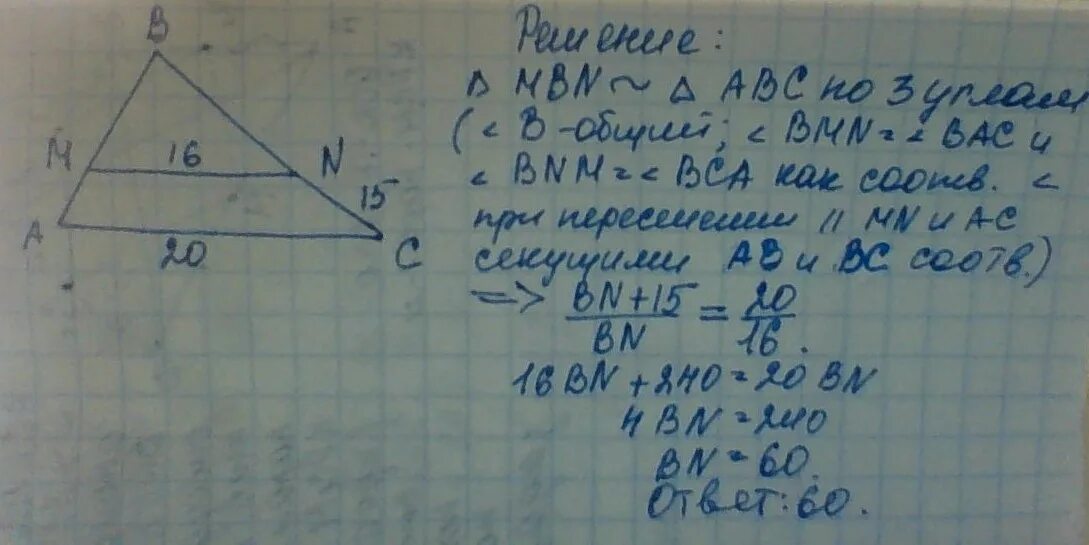 B
M 16 N
15
A 20 C
Решение:
Δ MBN ~ Δ ABC по 3 углам
(< B - общий; < BMN = < BAC и
< BNM = < BCA как соотв. <
при пересечении || MN и AC
секущими AB и BC соотв.)
=> BN+15/BN = 20/16.
16BN + 240 = 20BN
4BN = 240
BN = 60.
Ответ: 60.